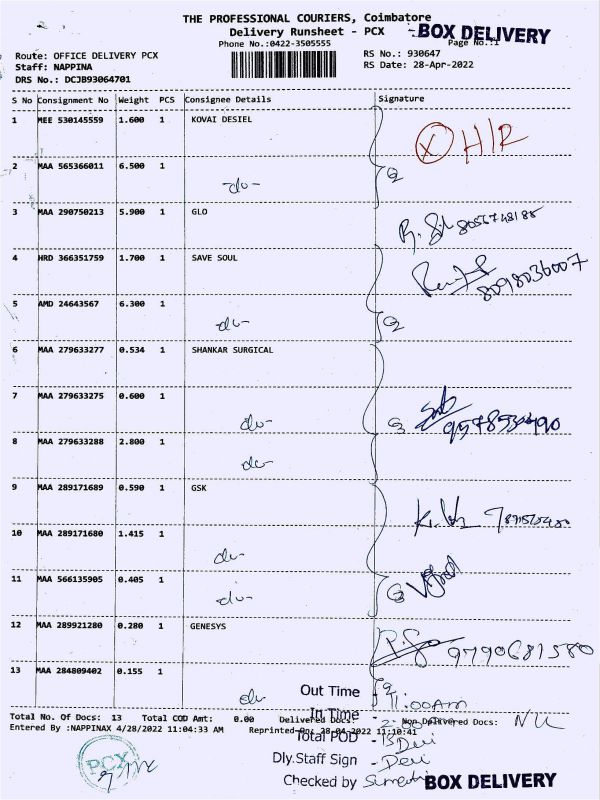 THE PROFESSIONAL COURIERS, Coimbatore
Delivery Runsheet - PCX BOX DELIVERY
Phone No.:0422-3505555 Page No.:1
Route: OFFICE DELIVERY PCX RS No.: 930647
Staff: NAPPINA RS Date: 28-Apr-2022
DRS No.: DCJB93064701
S No Consignment No Weight PCS Consignee Details Signature
1 MEE 530145559 1.600 1 KOVAI DESIEL
X H/R
2 MAA 565366011 6.500 1
-do-
3 MAA 290750213 5.900 1 GLO
8056748188
4 HRD 366351759 1.700 1 SAVE SOUL
8098036007
5 AMD 24643567 6.300 1
-do-
6 MAA 279633277 0.534 1 SHANKAR SURGICAL
7 MAA 279633275 0.600 1
-do-
8 MAA 279633288 2.800 1
-do-
9 MAA 289171689 0.590 1 GSK
10 MAA 289171680 1.415 1
-do-
11 MAA 566135905 0.405 1
-do-
12 MAA 289921280 0.280 1 GENESYS
9790681580
13 MAA 284809402 0.155 1
-do-
Out Time - 11:00AM
In Time -
Total No. Of Docs: 13 Total COD Amt: 0.00 Delivered Docs: Non Delivered Docs:
Entered By :NAPPINAX 4/28/2022 11:04:33 AM Reprinted On: 28-04-2022 11:10:41
Total POD - 13
Dly.Staff Sign - Devi
Checked by
BOX DELIVERY
PCX